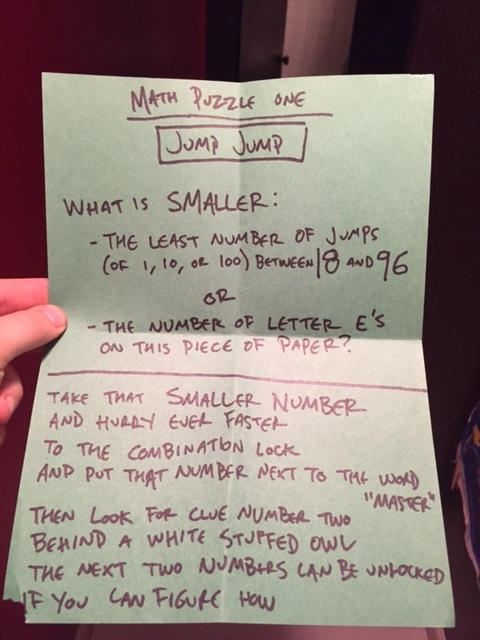 MATH PUZZLE ONE
JUMP JUMP
WHAT IS SMALLER:
- THE LEAST NUMBER OF JUMPS
(OF 1, 10, OR 100) BETWEEN 18 AND 96
OR
- THE NUMBER OF LETTER E'S
ON THIS PIECE OF PAPER?
TAKE THAT SMALLER NUMBER
AND HURRY EVER FASTER
TO THE COMBINATION LOCK
AND PUT THAT NUMBER NEXT TO THE WORD
"MASTER"
THEN LOOK FOR CLUE NUMBER TWO
BEHIND A WHITE STUFFED OWL
THE NEXT TWO NUMBERS CAN BE UNLOCKED
IF YOU CAN FIGURE HOW